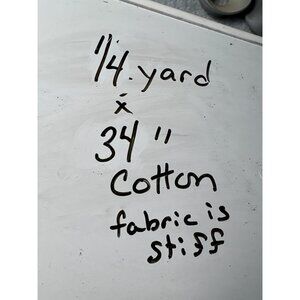 1/4 yard
x
34"
Cotton
fabric is
stiff